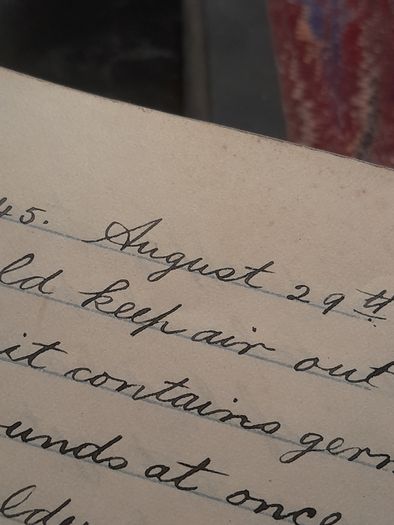 45. August 29th
ld keep air out
it contains germ
unds at once